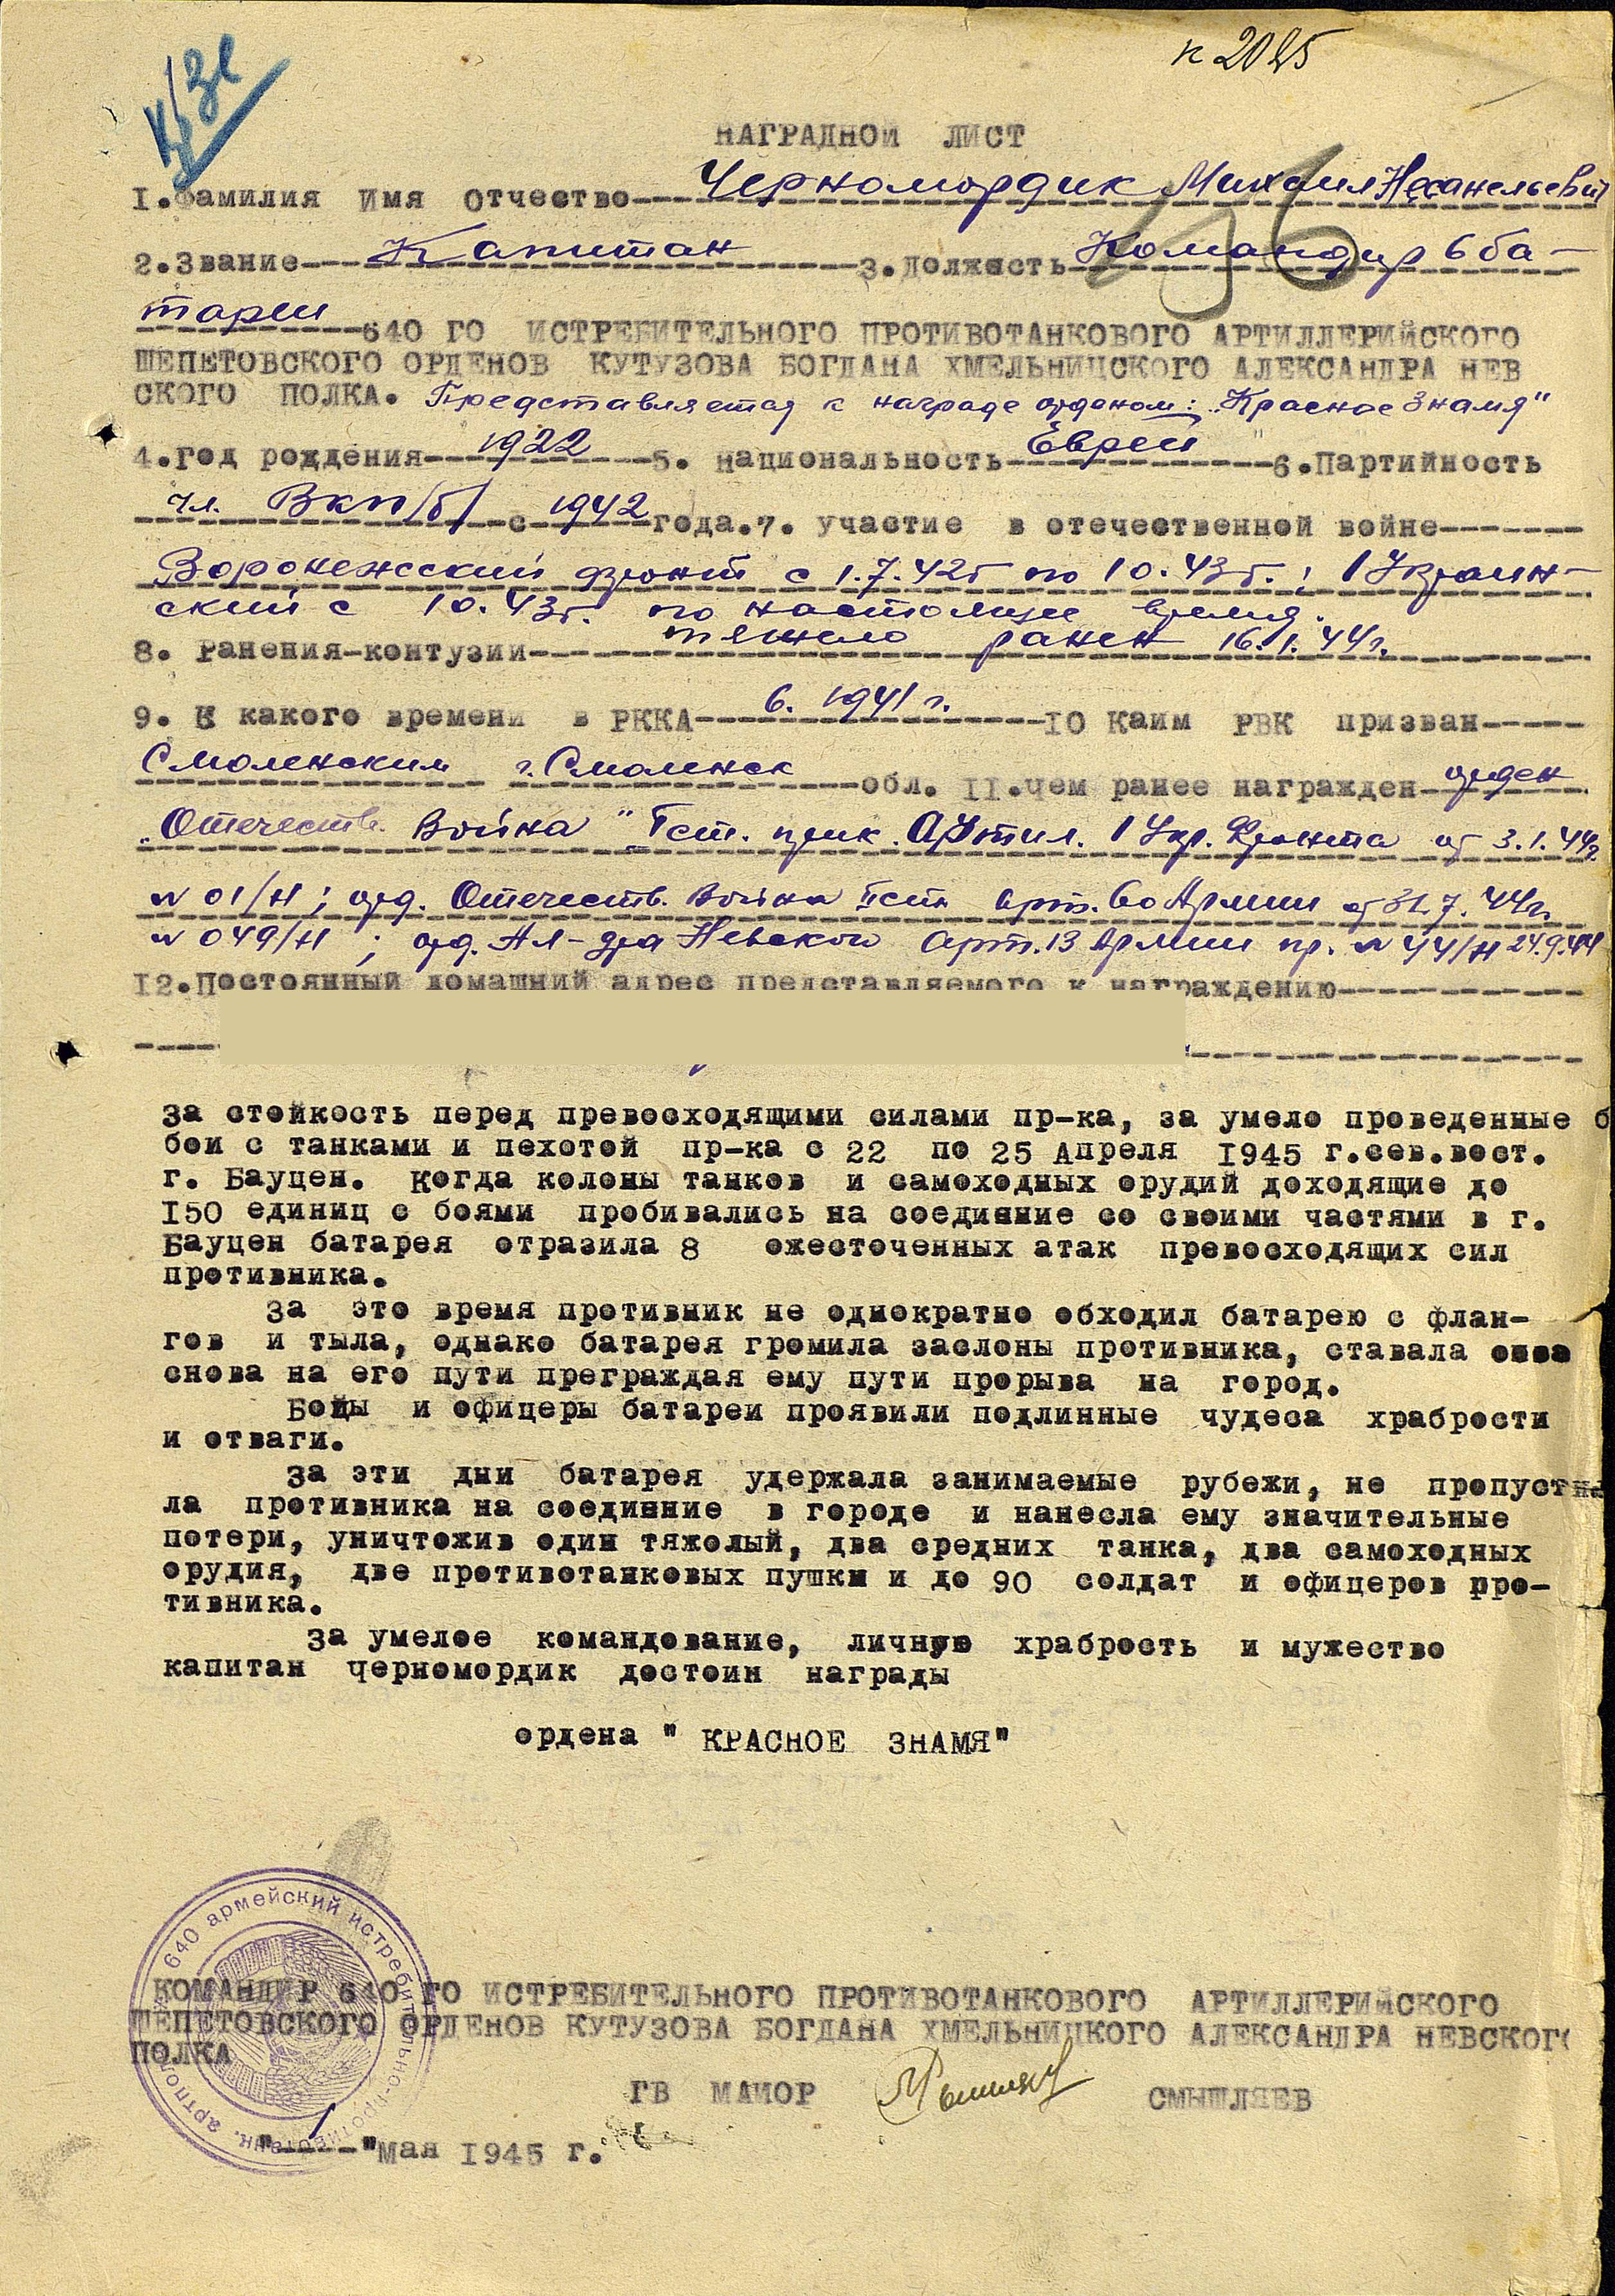 к 2025
НАГРАДНОЙ ЛИСТ
1.Фамилия Имя Отчество--- Черномордик Михаил Несанельевич
2.Звание--- Капитан ---3.Должность--- Командир 6 ба-
тареи ---640 ГО ИСТРЕБИТЕЛЬНОГО ПРОТИВОТАНКОВОГО АРТИЛЛЕРИЙСКОГО
ШЕПЕТОВСКОГО ОРДЕНОВ КУТУЗОВА БОГДАНА ХМЕЛЬНИЦСКОГО АЛЕКСАНДРА НЕВ
СКОГО ПОЛКА. Представляется к награде орденом: „Красное Знамя"
4.Год рождения--- 1922 ---5. Национальность--- Еврей ---6.Партийность
чл. ВКП/б/ ---с--- 1942 ---года.7. участие в отечественной войне---
Воронежский фронт с 1.7.42г по 10.43г.; 1 Украин-
ский с 10.43г. по настоящее время.
8. Ранения-контузии--- тяжело ранен 16.1.44г.
9. С какого времени в РККА--- 6. 1941 г. ---10 Каим РВК призван---
Смоленским г. Смоленск ---обл. II.чем ранее награжден--- орден
„Отечеств. Война" I ст. прик. Артил. 1 Укр. Фронта от 3.1.44г.
№ 01/н; орд. Отечеств. Война II ст Арт. 60 Армии от 31.7.44г.
№ 049/н; орд. Ал-дра Невского Арт. 13 Армии пр. № 44/н 24.9.44
12.Постоянный домашний адрес представляемого к награждению---
За стойкость перед превосходящими силами пр-ка, за умело проведенные б
бои с танками и пехотой пр-ка с 22 по 25 Апреля 1945 г.сев.вост.
г. Бауцен. Когда колоны танков и самоходных орудий доходящие до
150 единиц с боями пробивались на соединие со своими частями в г.
Бауцен батарея отразила 8 ожесточенных атак превосходящих сил
противника.
За это время противник не однократно обходил батарею с флан-
гов и тыла, однако батарея громила заслоны противника, ставала
снова на его пути преграждая ему пути прорыва на город.
Бойцы и офицеры батареи проявили подлинные чудеса храбрости
и отваги.
За эти дни батарея удержала занимаемые рубежи, не пропусти
ла противника на соединие в городе и нанесла ему значительные
потери, уничтожив один тяжолый, два средних танка, два самоходных
орудия, две противотанковых пушки и до 90 солдат и офицеров про-
тивника.
За умелое командование, личную храбрость и мужество
капитан черномордик достоин награды
ордена " КРАСНОЕ ЗНАМЯ"
640 армейский истребительно-противотанк. артполк
КОМАНДИР 640 ГО ИСТРЕБИТЕЛЬНОГО ПРОТИВОТАНКОВОГО АРТИЛЛЕРИЙСКОГО
ШЕПЕТОВСКОГО ОРДЕНОВ КУТУЗОВА БОГДАНА ХМЕЛЬНИЦКОГО АЛЕКСАНДРА НЕВСКОГО
ПОЛКА
ГВ МАИОР СМЫШЛЯЕВ
"--1--"Мая 1945 г.